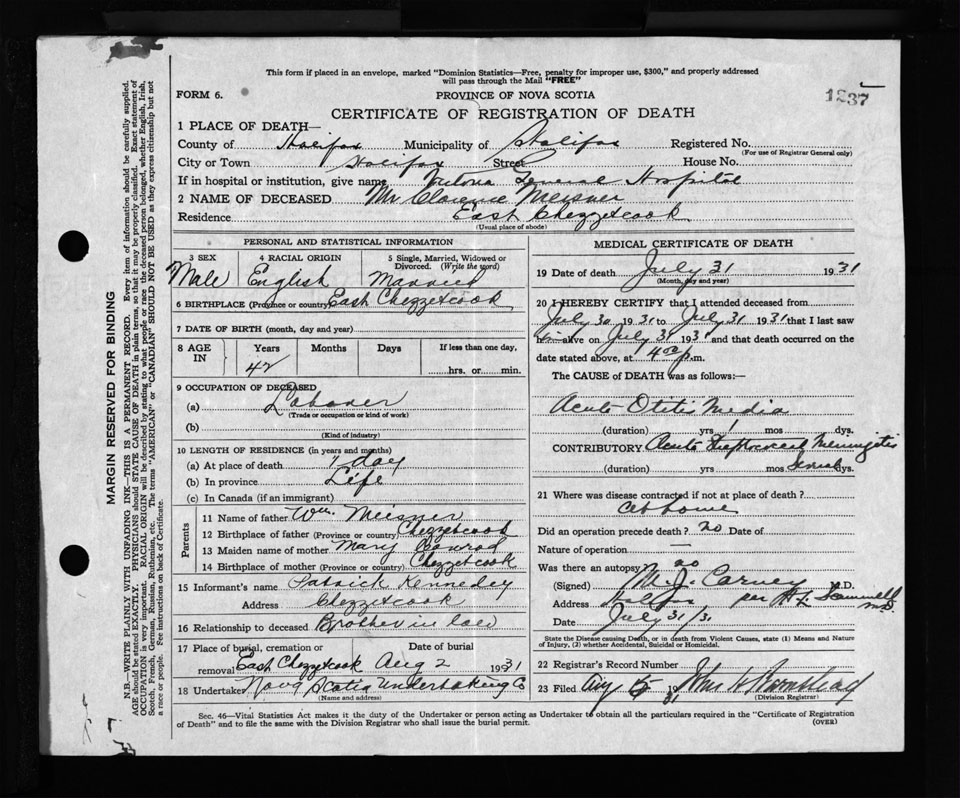 This form if placed in an envelope, marked "Dominion Statistics—Free, penalty for improper use, $300," and properly addressed
will pass through the Mail "FREE"
FORM 6.
PROVINCE OF NOVA SCOTIA
1237
CERTIFICATE OF REGISTRATION OF DEATH
1 PLACE OF DEATH—
County of Halifax Municipality of Halifax Registered No.
(For use of Registrar General only)
City or Town Halifax Street House No.
If in hospital or institution, give name Victoria General Hospital
2 NAME OF DECEASED Mr. Clarence Meisner
Residence East Chezzetcook
(Usual place of abode)
PERSONAL AND STATISTICAL INFORMATION
3 SEX
Male
4 RACIAL ORIGIN
English
5 Single, Married, Widowed or
Divorced. (Write the word)
Married
6 BIRTHPLACE (Province or country) East Chezzetcook
7 DATE OF BIRTH (month, day and year)
8 AGE IN
Years Months Days If less than one day,
42 hrs. or min.
9 OCCUPATION OF DECEASED
(a) Laborer
(Trade or occupation or kind of work)
(b)
(Kind of industry)
10 LENGTH OF RESIDENCE (in years and months)
(a) At place of death 1 day
(b) In province Life
(c) In Canada (if an immigrant)
Parents
11 Name of father Wm. Meisner
12 Birthplace of father (Province or country) Chezzetcook
13 Maiden name of mother Mary Conrod
14 Birthplace of mother (Province or country) Chezzetcook
15 Informant's name Patrick Kennedey
Address Chezzetcook
16 Relationship to deceased Brother in law
17 Place of burial, cremation or Date of burial
removal East Chezzetcook Aug 2 1931
18 Undertaker Nova Scotia Undertaking Co
(Name and address)
MEDICAL CERTIFICATE OF DEATH
19 Date of death July 31 1931
(Month, day and year)
20 I HEREBY CERTIFY that I attended deceased from
July 30 1931 to July 31 1931 that I last saw
him alive on July 31 1931 and that death occurred on the
date stated above, at 4 p.m.
The CAUSE of DEATH was as follows:—
Acute Otitis Media
(duration) yrs 1 mos dys.
CONTRIBUTORY Acute Meningitis
(duration) yrs mos dys.
21 Where was disease contracted if not at place of death?
At home
Did an operation precede death? no Date of
Nature of operation —
Was there an autopsy no
(Signed) M. J. Carney M.D.
Address Halifax per
Date July 31/31
State the Disease causing Death, or in death from Violent Causes, state (1) Means and Nature
of Injury, (2) whether Accidental, Suicidal or Homicidal.
22 Registrar's Record Number
23 Filed Aug 5 31 John H
(Division Registrar)
Sec. 46—Vital Statistics Act makes it the duty of the Undertaker or person acting as Undertaker to obtain all the particulars required in the "Certificate of Registration
of Death" and to file the same with the Division Registrar who shall issue the burial permit.
(OVER)
MARGIN RESERVED FOR BINDING
N.B.—WRITE PLAINLY WITH UNFADING INK—THIS IS A PERMANENT RECORD. Every item of information should be carefully supplied.
AGE should be stated EXACTLY. PHYSICIANS should STATE CAUSE OF DEATH in plain terms, so that it may be properly classified. Exact statement of
OCCUPATION is very important. RACIAL ORIGIN will be described by stating to what people or race the deceased person belonged, whether English, Irish,
Scotch, French, German, Russian, Ruthenian, etc. The terms "AMERICAN" or "CANADIAN" SHOULD NOT BE USED as they express citizenship but not
a race or people. See instructions on back of Certificate.